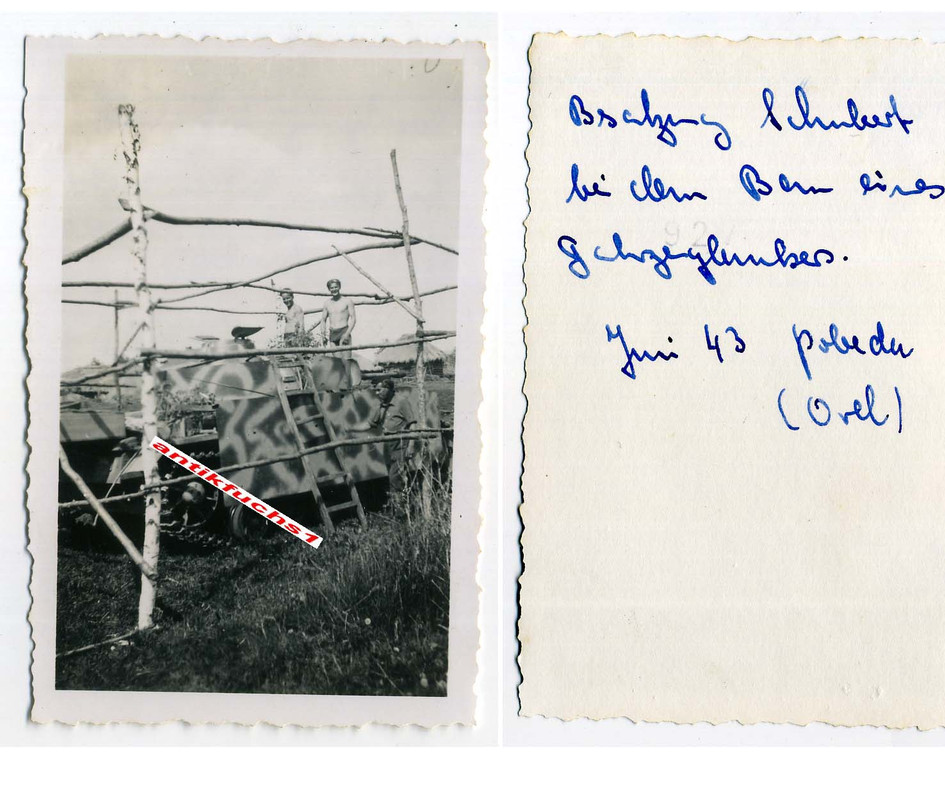 antikfuchs1
Besatzung Schubert
bei dem Bau eines
Juni 43 Pobeda
(Orel)